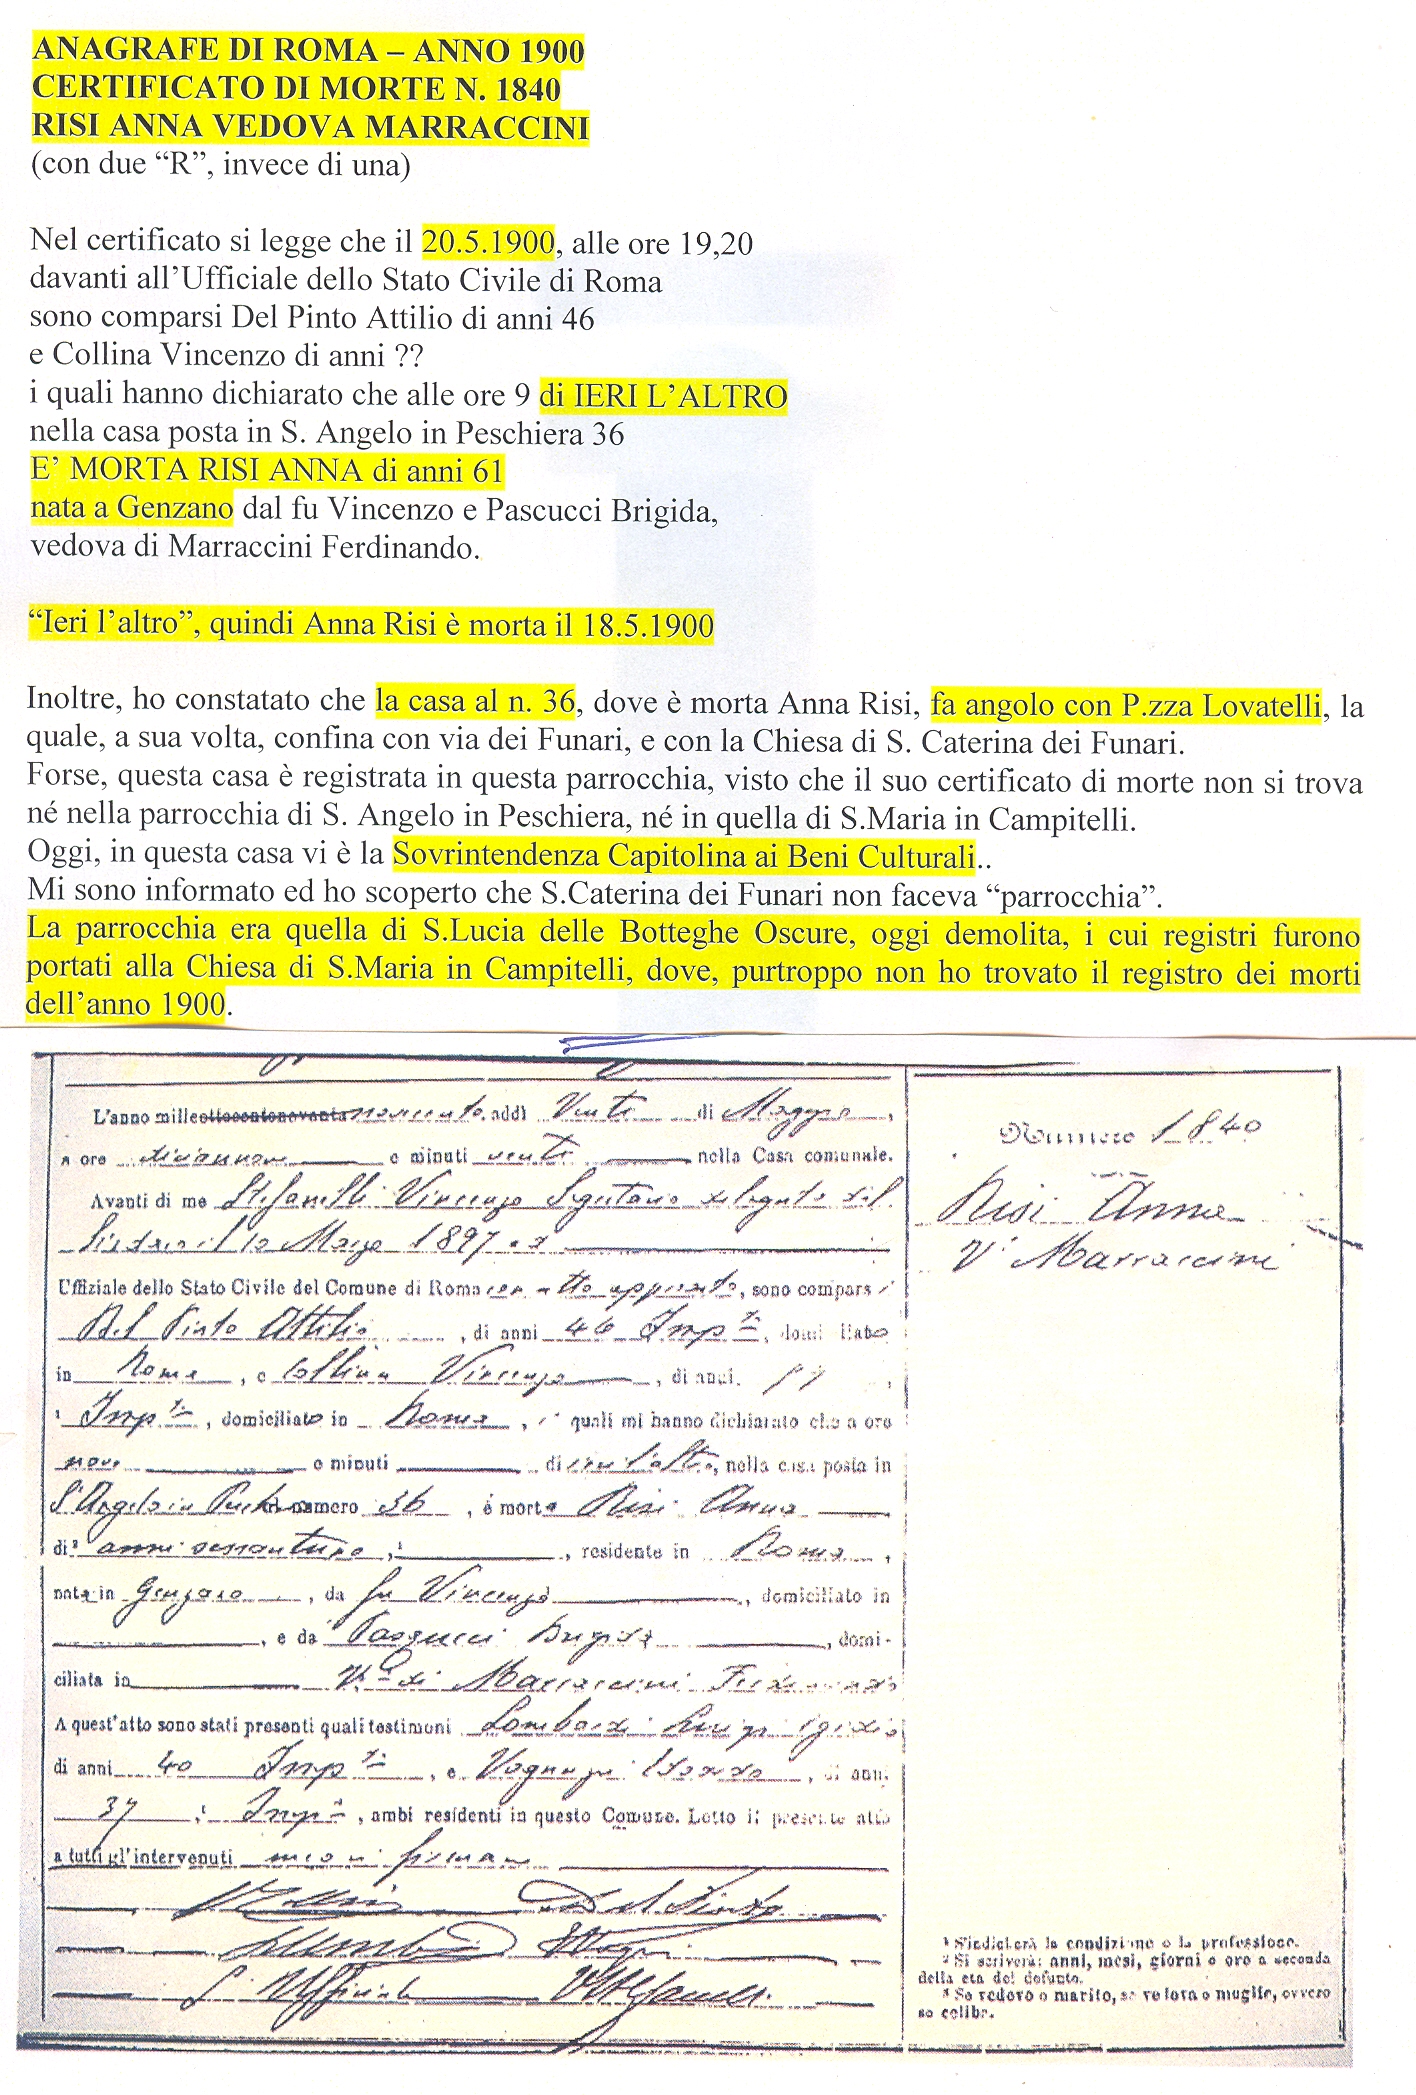 ANAGRAFE DI ROMA – ANNO 1900
CERTIFICATO DI MORTE N. 1840
RISI ANNA VEDOVA MARRACCINI
(con due “R”, invece di una)
Nel certificato si legge che il 20.5.1900, alle ore 19,20
davanti all’Ufficiale dello Stato Civile di Roma
sono comparsi Del Pinto Attilio di anni 46
e Collina Vincenzo di anni ??
i quali hanno dichiarato che alle ore 9 di IERI L’ALTRO
nella casa posta in S. Angelo in Peschiera 36
E’ MORTA RISI ANNA di anni 61
nata a Genzano dal fu Vincenzo e Pascucci Brigida,
vedova di Marraccini Ferdinando.
“Ieri l’altro”, quindi Anna Risi è morta il 18.5.1900
Inoltre, ho constatato che la casa al n. 36, dove è morta Anna Risi, fa angolo con P.zza Lovatelli, la
quale, a sua volta, confina con via dei Funari, e con la Chiesa di S. Caterina dei Funari.
Forse, questa casa è registrata in questa parrocchia, visto che il suo certificato di morte non si trova
né nella parrocchia di S. Angelo in Peschiera, né in quella di S.Maria in Campitelli.
Oggi, in questa casa vi è la Sovrintendenza Capitolina ai Beni Culturali..
Mi sono informato ed ho scoperto che S.Caterina dei Funari non faceva “parrocchia”.
La parrocchia era quella di S.Lucia delle Botteghe Oscure, oggi demolita, i cui registri furono
portati alla Chiesa di S.Maria in Campitelli, dove, purtroppo non ho trovato il registro dei morti
dell’anno 1900.
L'anno milleottocentonovanta novecento, addì Venti di Maggio,
a ore diciannove e minuti venti nella Casa comunale.
Avanti di me Stefanelli Vincenzo Segretario delegato dal
Sindaco il 10 Marzo 1897
Uffiziale dello Stato Civile del Comune di Roma con atto approvato, sono compars i
Del Pinto Attilio, di anni 46 Imp.to, domiciliato
in Roma, e Collina Vincenzo, di anni
Imp.to, domiciliato in Roma, i quali mi hanno dichiarato che a ore
nove e minuti di ieri l'altro, nella casa posta in
S. Angelo in Pescheria numero 36, è morta Risi Anna
di² anni sessantuno, residente in Roma,
nata in Genzano, da fu Vincenzo, domiciliato in
, e da Pascucci Brigida, domi-
ciliata in V.a di Marraccini Ferdinando
A quest'atto sono stati presenti quali testimoni Lombardi Luigi Egidio
di anni 40 Imp.to, e, di anni
37, Imp.to, ambi residenti in questo Comune. Letto il presente atto
a tutti gl'intervenuti meco si firmano
Del Pinto
L'Ufficiale VStefanelli
Numero 1840
Risi Anna
V.a Marraccini
¹ S'indicherà la condizione o la professione.
² Si scriverà: anni, mesi, giorni o ore a seconda
della età del defunto.
³ Se vedovo o marito, se vedova o moglie, ovvero
se celibe.